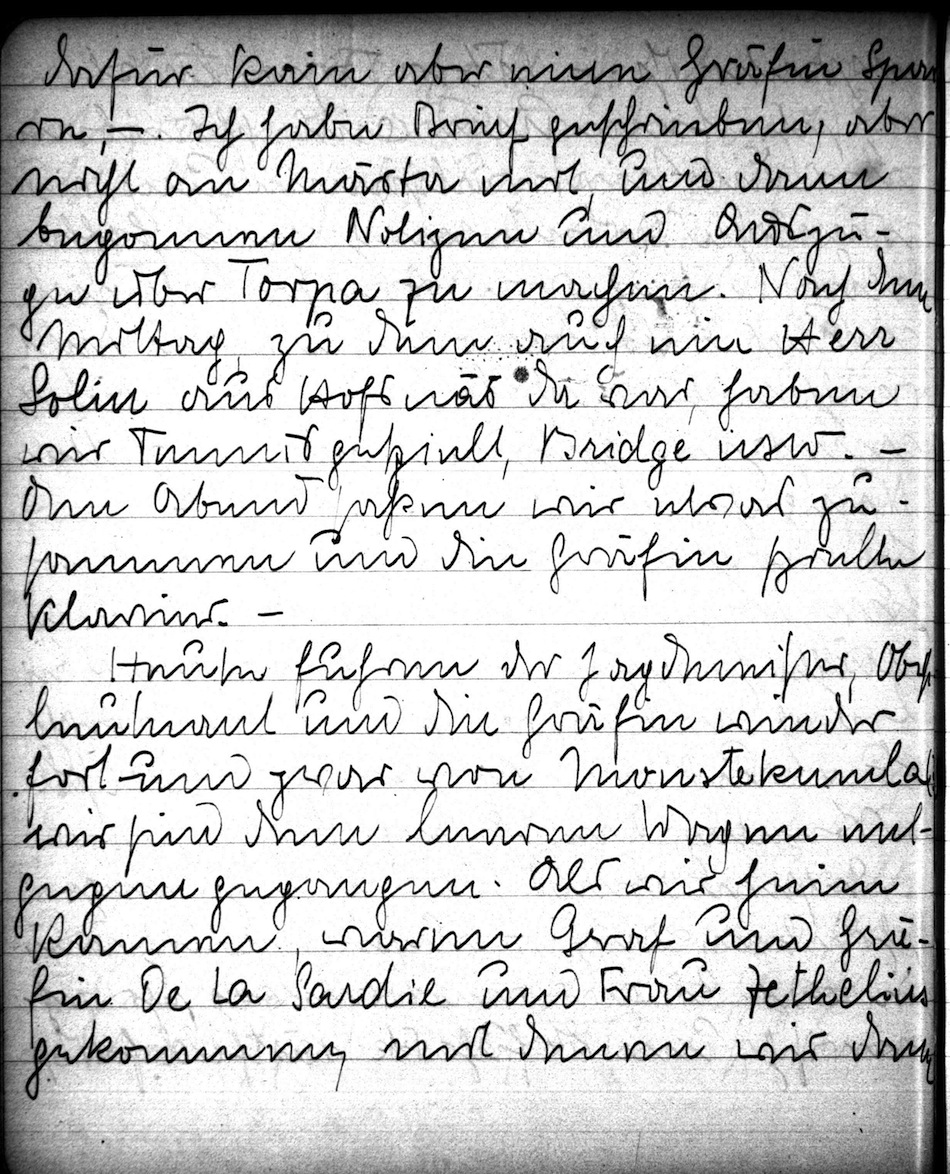 dafür kam aber eine Gräfin Spar
re, –. Ich habe Briefe geschrieben, aber
nicht an Märta mit, und dann
begonnen Notizen und Auszü-
ge über Torpa zu machen. Nach dem
Mittag, zu dem auch ein Herr
Solin aus Hofsnäs da war, haben
wir Tennis gespielt, Bridge usw. –
Am Abend saßen wir etwas zu-
sammen und die Gräfin spielte
Klavier. –
Heute fuhren der Jagdmeister, Obst
leutnant und die Gräfin wieder
fort und zwar von Månstekumla
wir sind dem leeren Wagen ent-
gegen gegangen. Als wir heim
kamen, waren Graf und Grä-
fin De La Gardie und Frau Zethelius
gekommen, mit denen wir dann